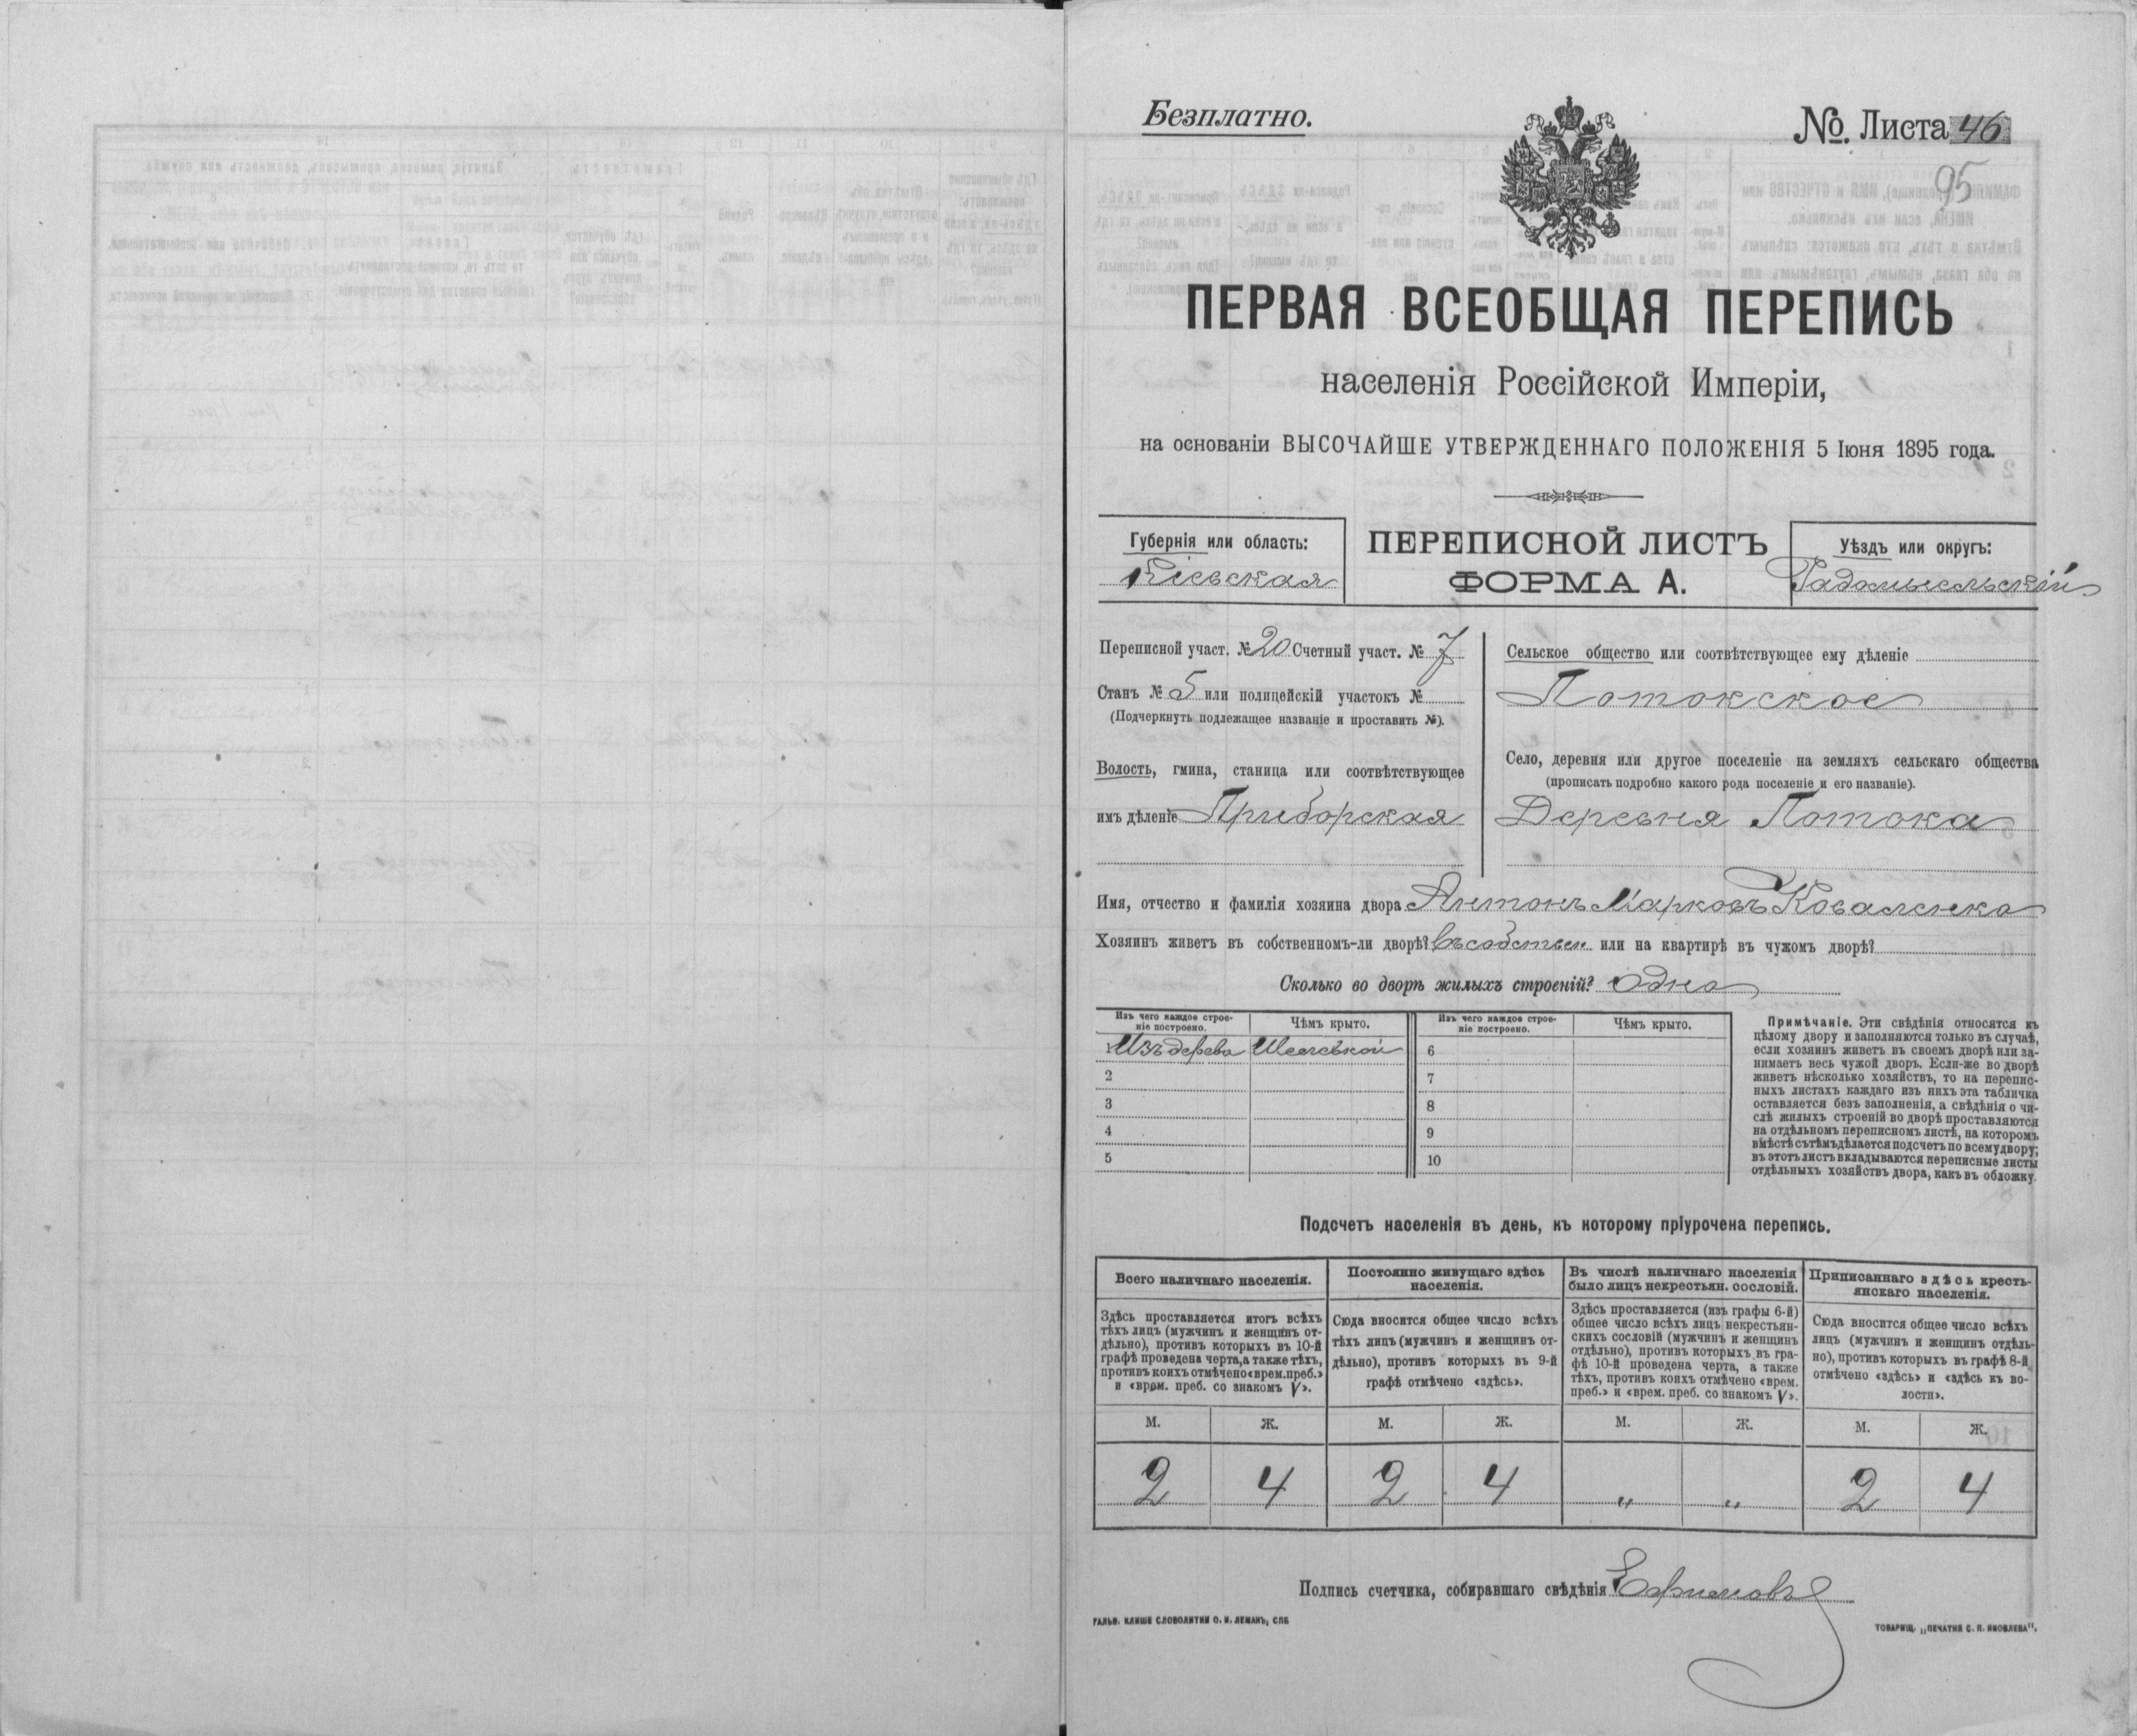 Безплатно.
№. Листа 46
95
ПЕРВАЯ ВСЕОБЩАЯ ПЕРЕПИСЬ
населенія Россійской Имперіи,
на основаніи ВЫСОЧАЙШЕ УТВЕРЖДЕННАГО ПОЛОЖЕНІЯ 5 Іюня 1895 года.
Губернія или область:
Кіевская
ПЕРЕПИСНОЙ ЛИСТЪ
ФОРМА А.
Уѣздъ или округъ:
Радомысльскій
Переписной участ. № 20 Счетный участ. № 7
Станъ № 5 или полицейскій участокъ №
(Подчеркнуть подлежащее названіе и проставить №).
Волость, гмина, станица или соотвѣтствующее
имъ дѣленіе Приборская
Сельское общество или соотвѣтствующее ему дѣленіе
Потокское
Село, деревня или другое поселеніе на земляхъ сельскаго общества
(прописать подробно какого рода поселеніе и его названіе).
Деревня Потока
Имя, отчество и фамилія хозяина двора Антонъ Марковъ Коваленко
Хозяинъ живетъ въ собственномъ-ли дворѣ? въ собствен или на квартирѣ въ чужомъ дворѣ?
Сколько во дворѣ жилыхъ строеній? Одна
Изъ чего каждое строе-
ніе построено.
Чѣмъ крыто.
Изъ чего каждое строе-
ніе построено.
Чѣмъ крыто.
1 Изъ дерева
6
2
7
3
8
4
9
5
10
Примѣчаніе. Эти свѣдѣнія относятся къ
цѣлому двору и заполняются только въ случаѣ,
если хозяинъ живетъ въ своемъ дворѣ или за-
нимаетъ весь чужой дворъ. Если-же во дворѣ
живетъ нѣсколько хозяйствъ, то на перепис-
ныхъ листахъ каждаго изъ нихъ эта табличка
оставляется безъ заполненія, а свѣдѣнія о чи-
слѣ жилыхъ строеній во дворѣ проставляются
на отдѣльномъ переписномъ листѣ, на которомъ
вмѣстѣ съ тѣмъ дѣлается подсчетъ по всему двору;
въ этотъ листъ вкладываются переписные листы
отдѣльныхъ хозяйствъ двора, какъ въ обложку.
Подсчетъ населенія въ день, къ которому пріурочена перепись.
Всего наличнаго населенія.
Здѣсь проставляется итогъ всѣхъ
тѣхъ лицъ (мужчинъ и женщинъ от-
дѣльно), противъ которыхъ въ 10-й
графѣ проведена черта, а также тѣхъ,
противъ коихъ отмѣчено «врем. преб.»
и «врем. преб. со знакомъ V».
Постоянно живущаго здѣсь
населенія.
Сюда вносится общее число всѣхъ
тѣхъ лицъ (мужчинъ и женщинъ от-
дѣльно), противъ которыхъ въ 9-й
графѣ отмѣчено «здѣсь».
Въ числѣ наличнаго населенія
было лицъ некрестьян. сословій.
Здѣсь проставляется (изъ графы 6-й)
общее число всѣхъ лицъ некрестьян-
скихъ сословій (мужчинъ и женщинъ
отдѣльно), противъ которыхъ въ гра-
фѣ 10-й проведена черта, а также
тѣхъ, противъ коихъ отмѣчено «врем.
преб.» и «врем. преб. со знакомъ V».
Приписаннаго здѣсь кресть-
янскаго населенія.
Сюда вносится общее число всѣхъ
лицъ (мужчинъ и женщинъ отдѣль-
но), противъ которыхъ въ графѣ 8-й
отмѣчено «здѣсь» и «здѣсь къ во-
лости».
М. Ж. М. Ж. М. Ж. М. Ж.
2 4 2 4 „ „ 2 4
Подпись счетчика, собиравшаго свѣдѣнія Ефимовъ
ГАЛЬВ. КЛИШЕ СЛОВОЛИТНИ О. И. ЛЕМАНЪ, СПБ
ТОВАРИЩ. „ПЕЧАТНЯ С. П. ЯКОВЛЕВА".